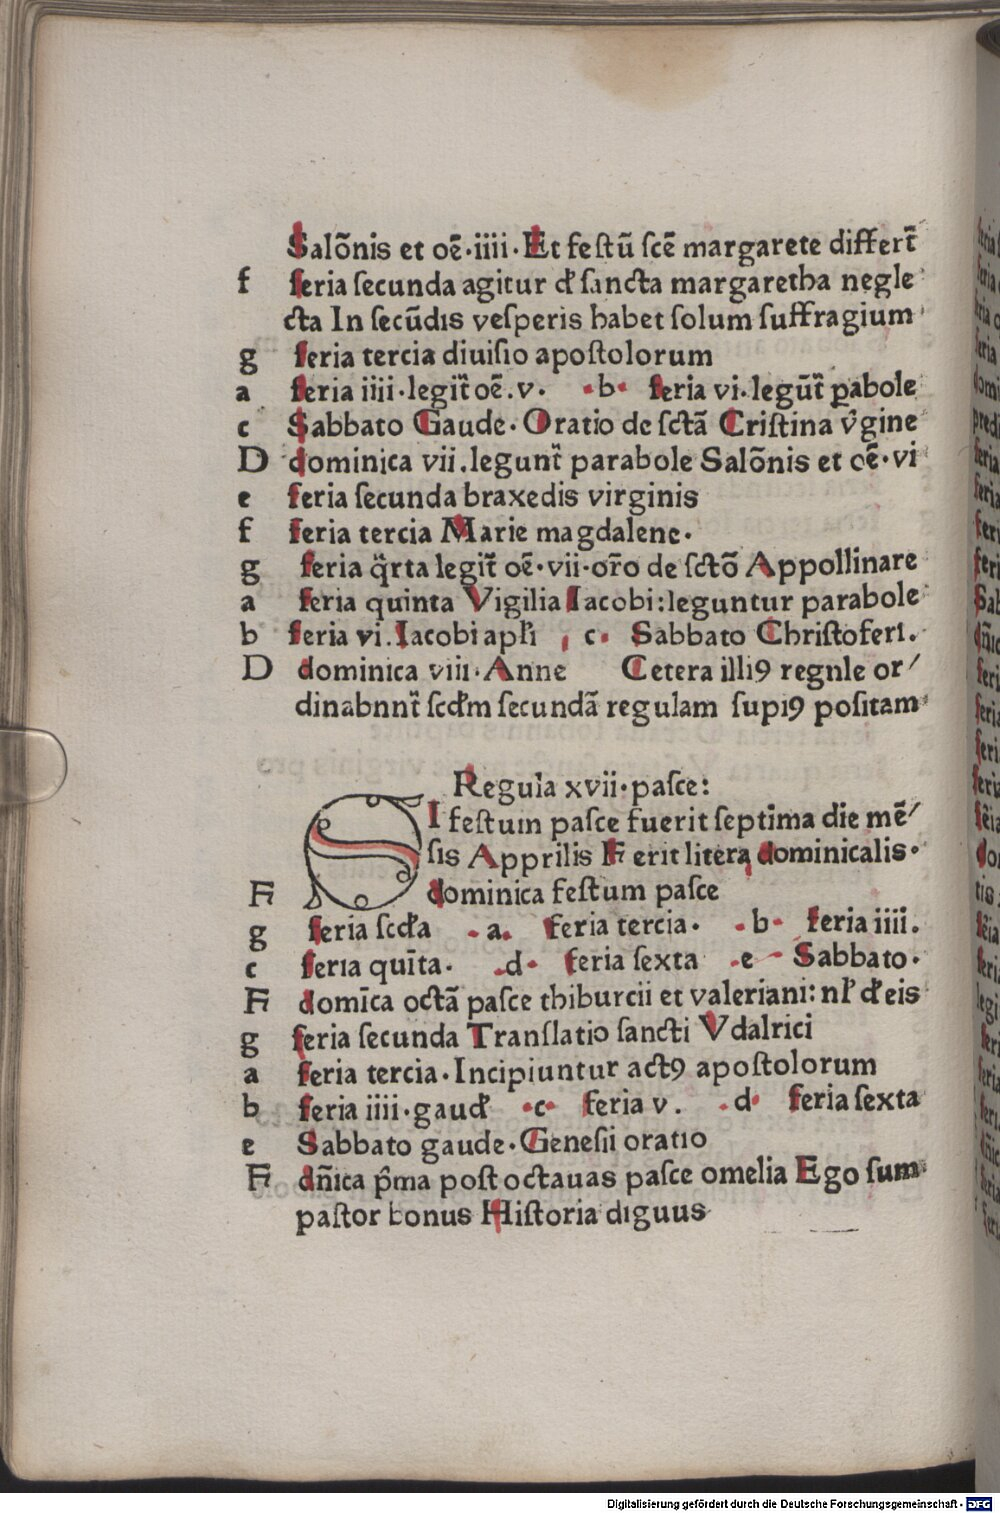 Salōnis et oē·iiii·Et feſtū ſcē margarete differt̃
f feria ſecunda agitur đ ſancta margaretha negle
cta In ſecūdis veſperis habet ſolum ſuffragium
g feria tercia diuiſio apoſtolorum
a feria iiii·legit̃ oē.v. ·b· feria vi·legūt̃ ꝑabole
c Sabbato Gaude·Oratio de ſctā Criſtina v̓gine
D dominica vii.legunt̃ parabole Salōnis et oē·vi
e feria ſecunda braxedis virginis
f feria tercia Marie magdalene·
g feria q̈rta legit̃ oē·vii·or̄o de ſctō Appollinare
a feria quinta Vigilia Iacobi:leguntur parabole
b feria vi.Iacobi apl̓i , c· Sabbato Chriſtoferi.
D dominica viii·Anne Cetera illi9 regnle or/
dinabnnt̃ ſcđm ſecundā regulam ſupi9 poſitam
Regula xvii·paſce:
SI feſtum paſce fuerit ſeptima die mē/
ſis Apprilis F erit litera dominicalis·
F dominica feſtum paſce
g feria ſcđa ·a· feria tercia· ·b· feria iiii.
c feria quīta· .d· feria ſexta ·e· Sabbato·
F domīca octā paſce thiburcii et valeriani:nl̓ đ eis
g feria ſecunda Tranſlatio ſancti Vdalrici
a feria tercia·Incipiuntur act9 apoſtolorum
b feria iiii·gauđ ·c· feria v. .d· feria ſexta
e Sabbato gaude·Geneſii oratio
F dn̄ica p̄ma poſt octauas paſce omelia Ego ſum
paſtor bonus Hiſtoria diguus
Digitalisierung gefördert durch die Deutsche Forschungsgemeinschaft - DFG